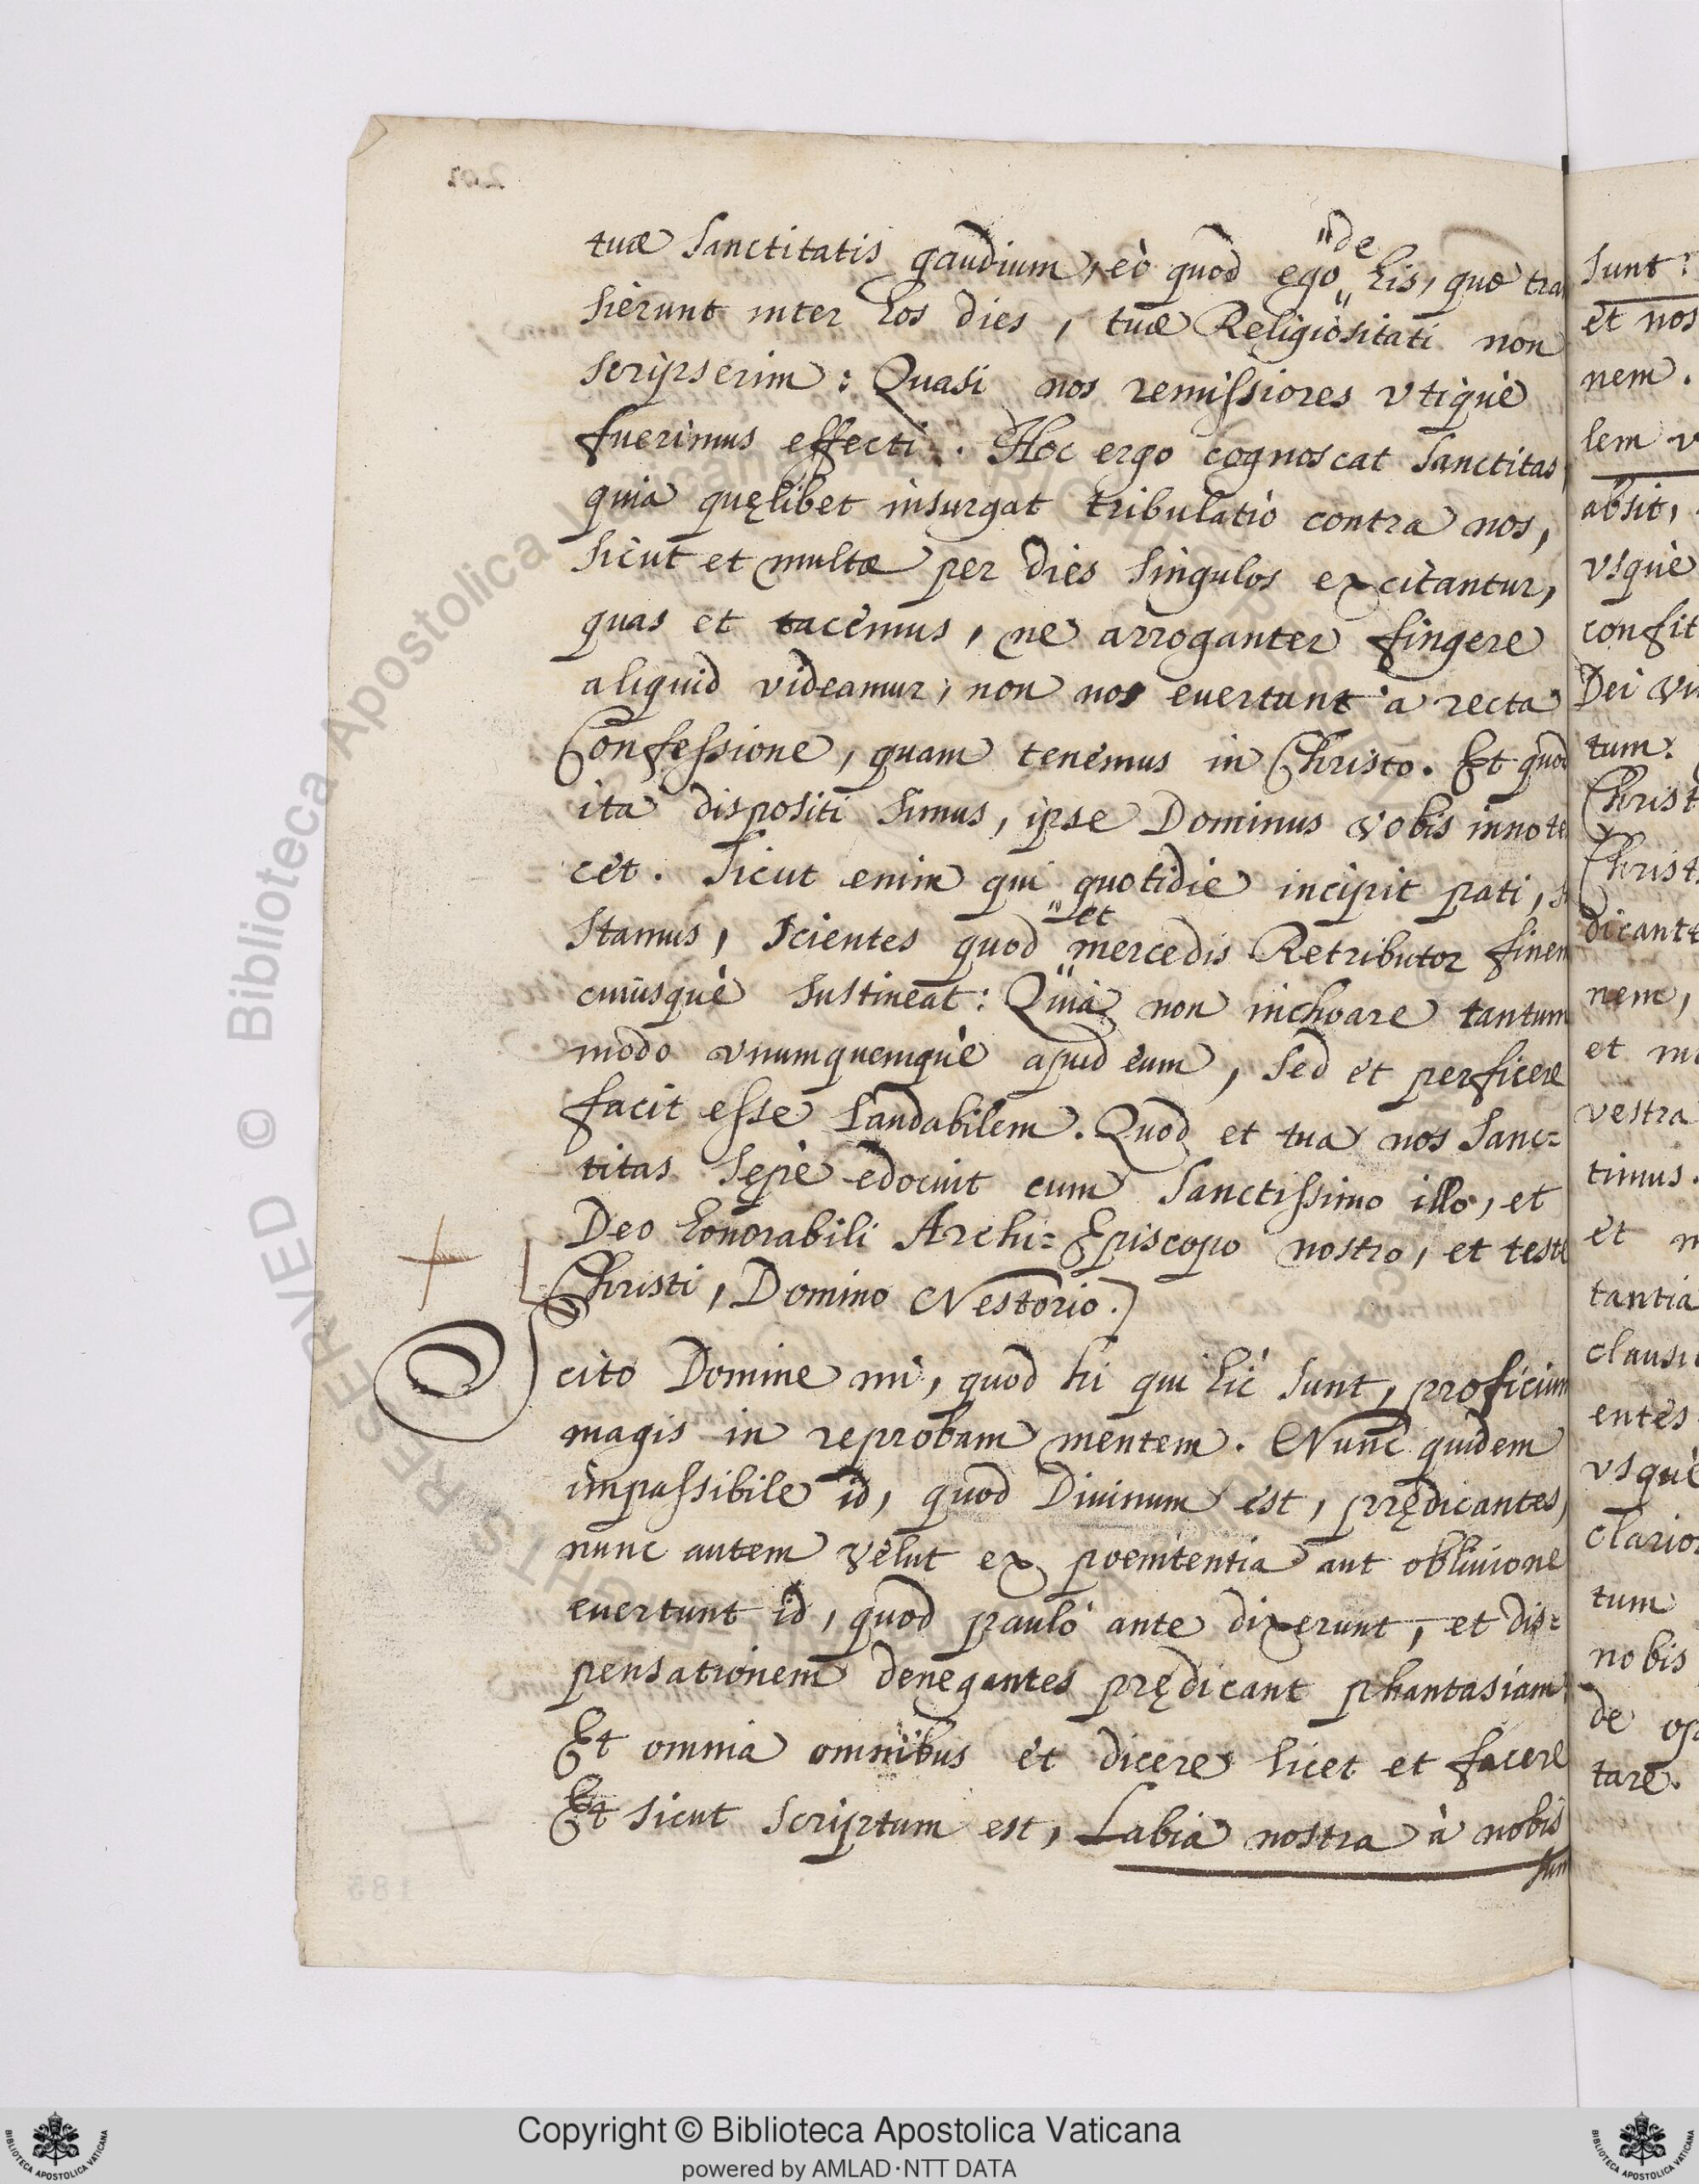 tuæ Sanctitatis gaudium, eò quod ego "de" his, quæ tran
sierunt inter hos dies, tuæ Religiositati non
scripserim: Quasi nos remissiores vtiquè
fuerimus effecti. Hoc ergo cognoscat Sanctitas
quia quęlibet insurgat tribulatio contra nos,
sicut et multæ per dies singulos excitantur,
quas et tacemus, ne arroganter fingere
aliquid videamur, non nos euertunt à recta
Confessione, quam tenemus in Christo. Et quod
ita dispositi simus, ipse Dominus vobis innotes
cet. Sicut enim qui quotidie incipit pati,
stamus, scientes quod "et" mercedis Retributor finem
cuiusquè sustineat: Quia non inchoare tantum
modo vnumquemquè apud eum, sed et perficere
facit esse laudabilem. Quod et tua nos Sanc=
titas sępè edocuit cum Sanctissimo illo, et
Deo honorabili Archi=Episcopo nostro, et teste
Christi, Domino Nestorio.]
Scito Domine mi, quod hi qui hic sunt, proficiunt
magis in reprobam mentem. Nunc quidem
impassibile id, quod Diuinum est, prędicantes,
nunc autem velut ex poenitentia aut obliuione
euertunt id, quod paulò ante dixerunt, et dis=
pensationem denegantes prędicant phantasiam
Et omnia omnibus et dicere licet et facere
Et sicut scriptum est, Labia nostra à nobis
sun
sunt:
et nos
nem.
lem v
absit,
vsquè
confit
Dei vi
tum.
Christ
Christ
dicant
nem,
et m
vestra
timus.
et n
tantia
clausi
entes
vsquè
clario
tum
nobis
de op
tare.
RESERVED © Biblioteca Apostolica Vaticana
Copyright © Biblioteca Apostolica Vaticana
powered by AMLAD·NTT DATA
BIBLIOTECA APOSTOLICA VATICANA
BIBLIOTECA APOSTOLICA VATICANA